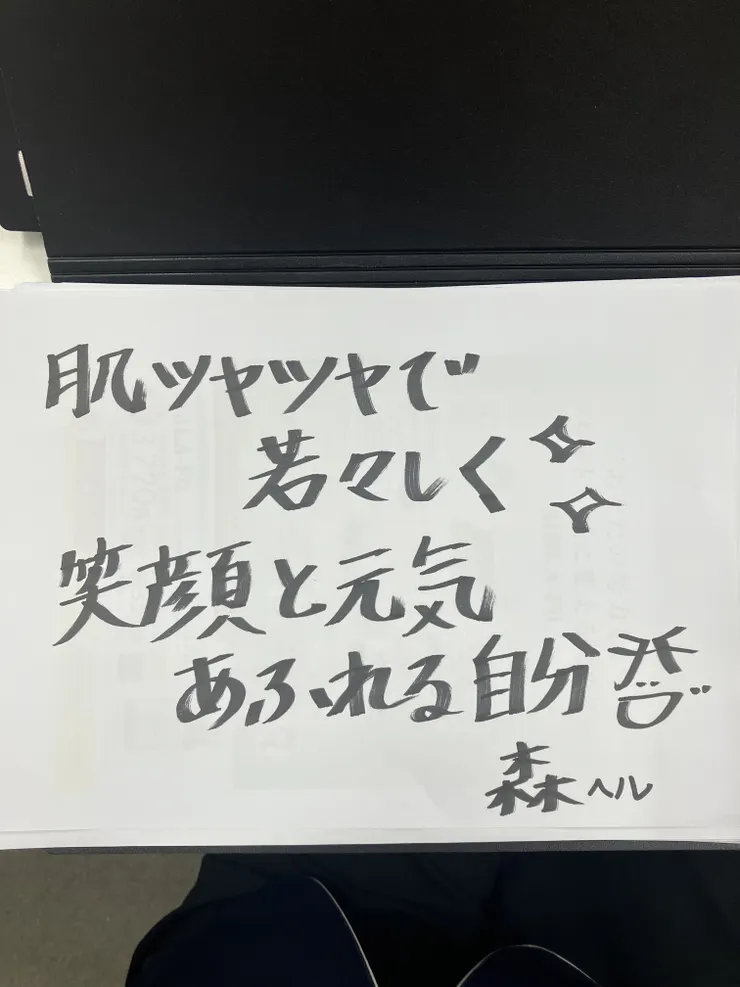 肌ツヤツヤで
若々しく
笑顔と元気
あふれる自分
森ヘル